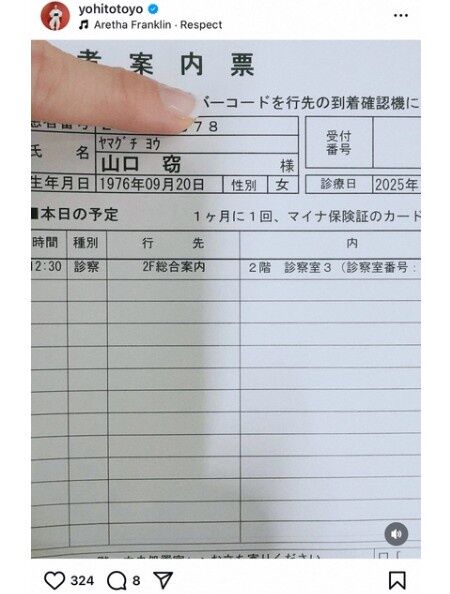 yohitotoyo
Aretha Franklin · Respect
者案内票
バーコードを行先の到着確認機に
78
ヤマグチ ヨウ
氏名 山口 窈 様
受付番号
生年月日 1976年09月20日 性別 女 診療日 2025年
■本日の予定 1ヶ月に1回、マイナ保険証のカード
時間 種別 行先 内
12:30 診察 2F総合案内 2階 診察室3（診察室番号：
324 8